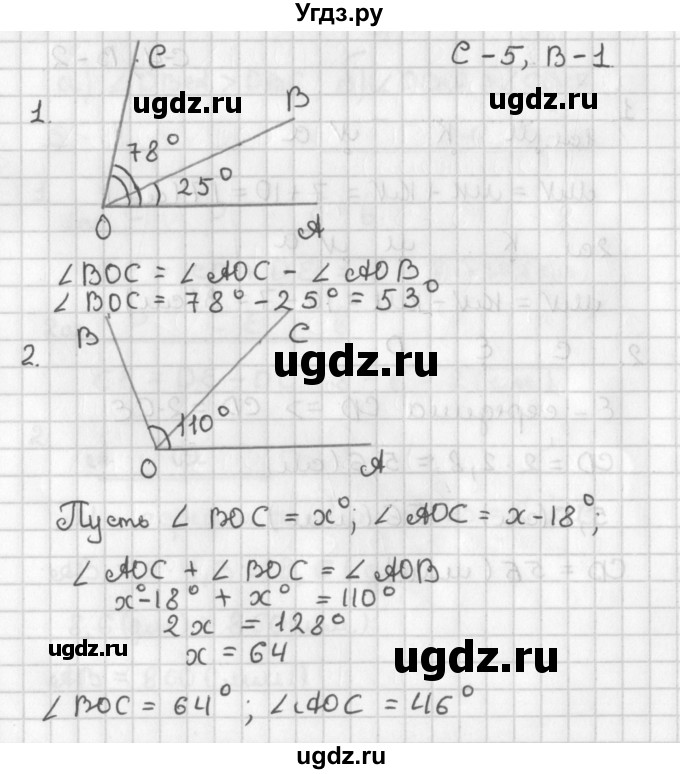 Угдз.ру
C
C-5, B-1
ugdz.ru
ugdz.ru
1.
B
78°
25°
O
A
∠ BOC = ∠ AOC - ∠ AOB
∠ BOC = 78° - 25° = 53°
B
C
2.
ugdz.ru
110°
O
A
Пусть ∠ BOC = x°; ∠ AOC = x-18°;
∠ AOC + ∠ BOC = ∠ AOB
x°-18° + x° = 110°
2x = 128°
ugdz.ru
ugdz.ru
x = 64
∠ BOC = 64°; ∠ AOC = 46°
ugdz.ru